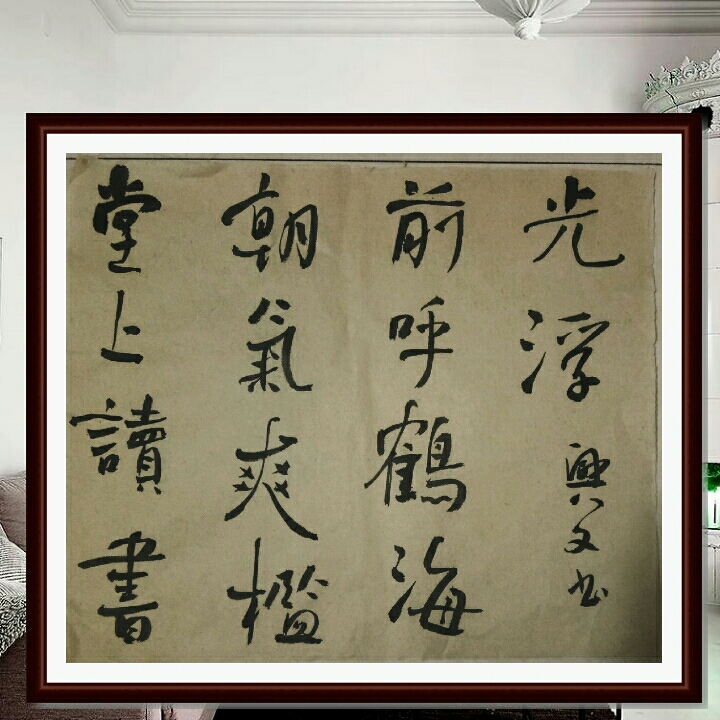 堂上讀書
朝氣爽檻
前呼鶴海
光浮 興文书